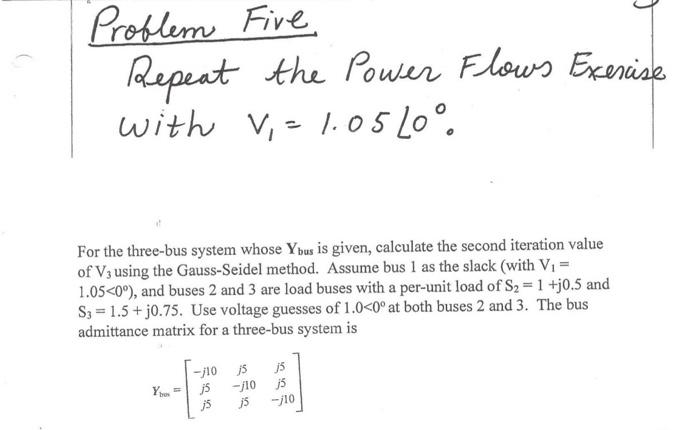 Problem Five
Repeat the Power Flows Exercise
with V₁ = 1.05∠0°.
For the three-bus system whose Ybus is given, calculate the second iteration value
of V3 using the Gauss-Seidel method. Assume bus 1 as the slack (with V1 =
1.05<0°), and buses 2 and 3 are load buses with a per-unit load of S2 = 1 +j0.5 and
S3 = 1.5 + j0.75. Use voltage guesses of 1.0<0° at both buses 2 and 3. The bus
admittance matrix for a three-bus system is
-j10 j5 j5
Ybus = j5 -j10 j5
j5 j5 -j10